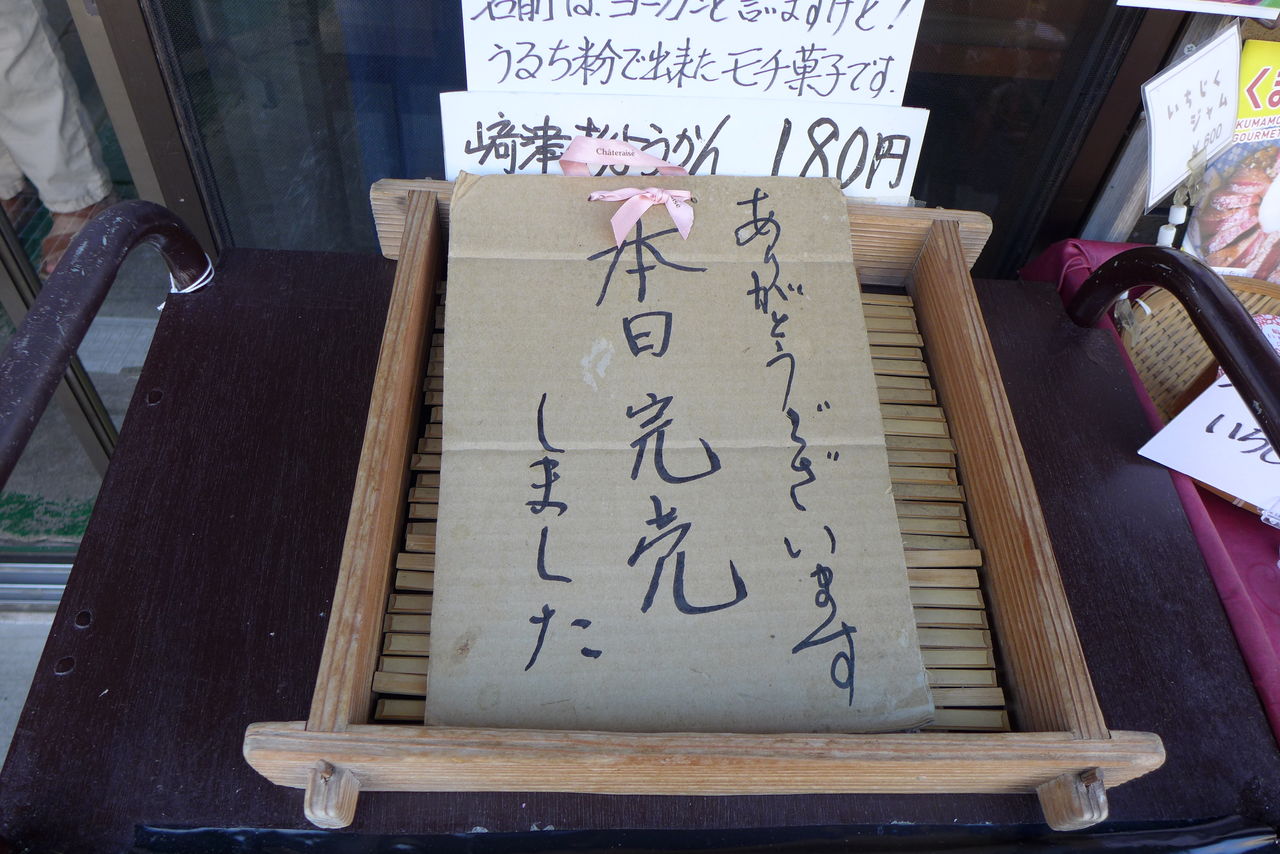 名前は、ヨーカンと言いますけど!
うるち粉で出来たモチ菓子です.
﨑津 ようかん 180円
Châteraisé
ありがとうございます
本日完売
しました
いちじく
ジャム
¥600
くま
KUMAMO
GOURMET